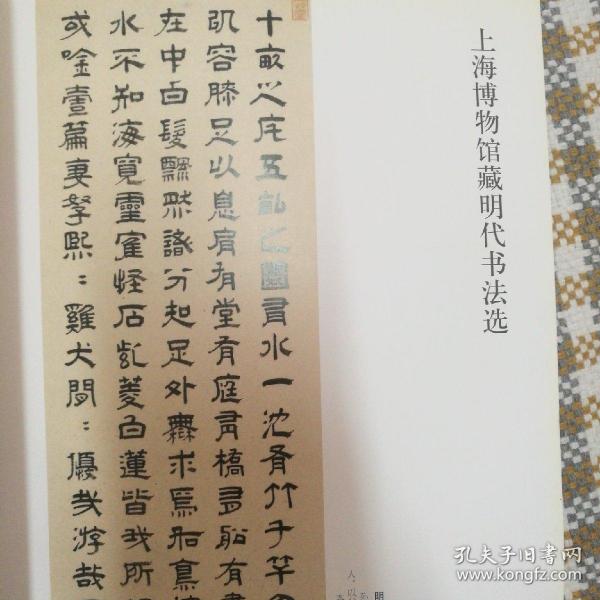 上海博物馆藏明代书法选
十畝之宅五畝之園有水一沱有竹千竿
容膝足以息肩有堂有庭有橋有船有書
在中白髮飄然識分知足外無求焉如鳥
水不知海寬靈寉怪石紫菱白蓮皆我所
或唫壹篇妻孥熙：雞犬閒：優哉游哉
明
人，以
孔夫子旧书网
www.kongfz.com